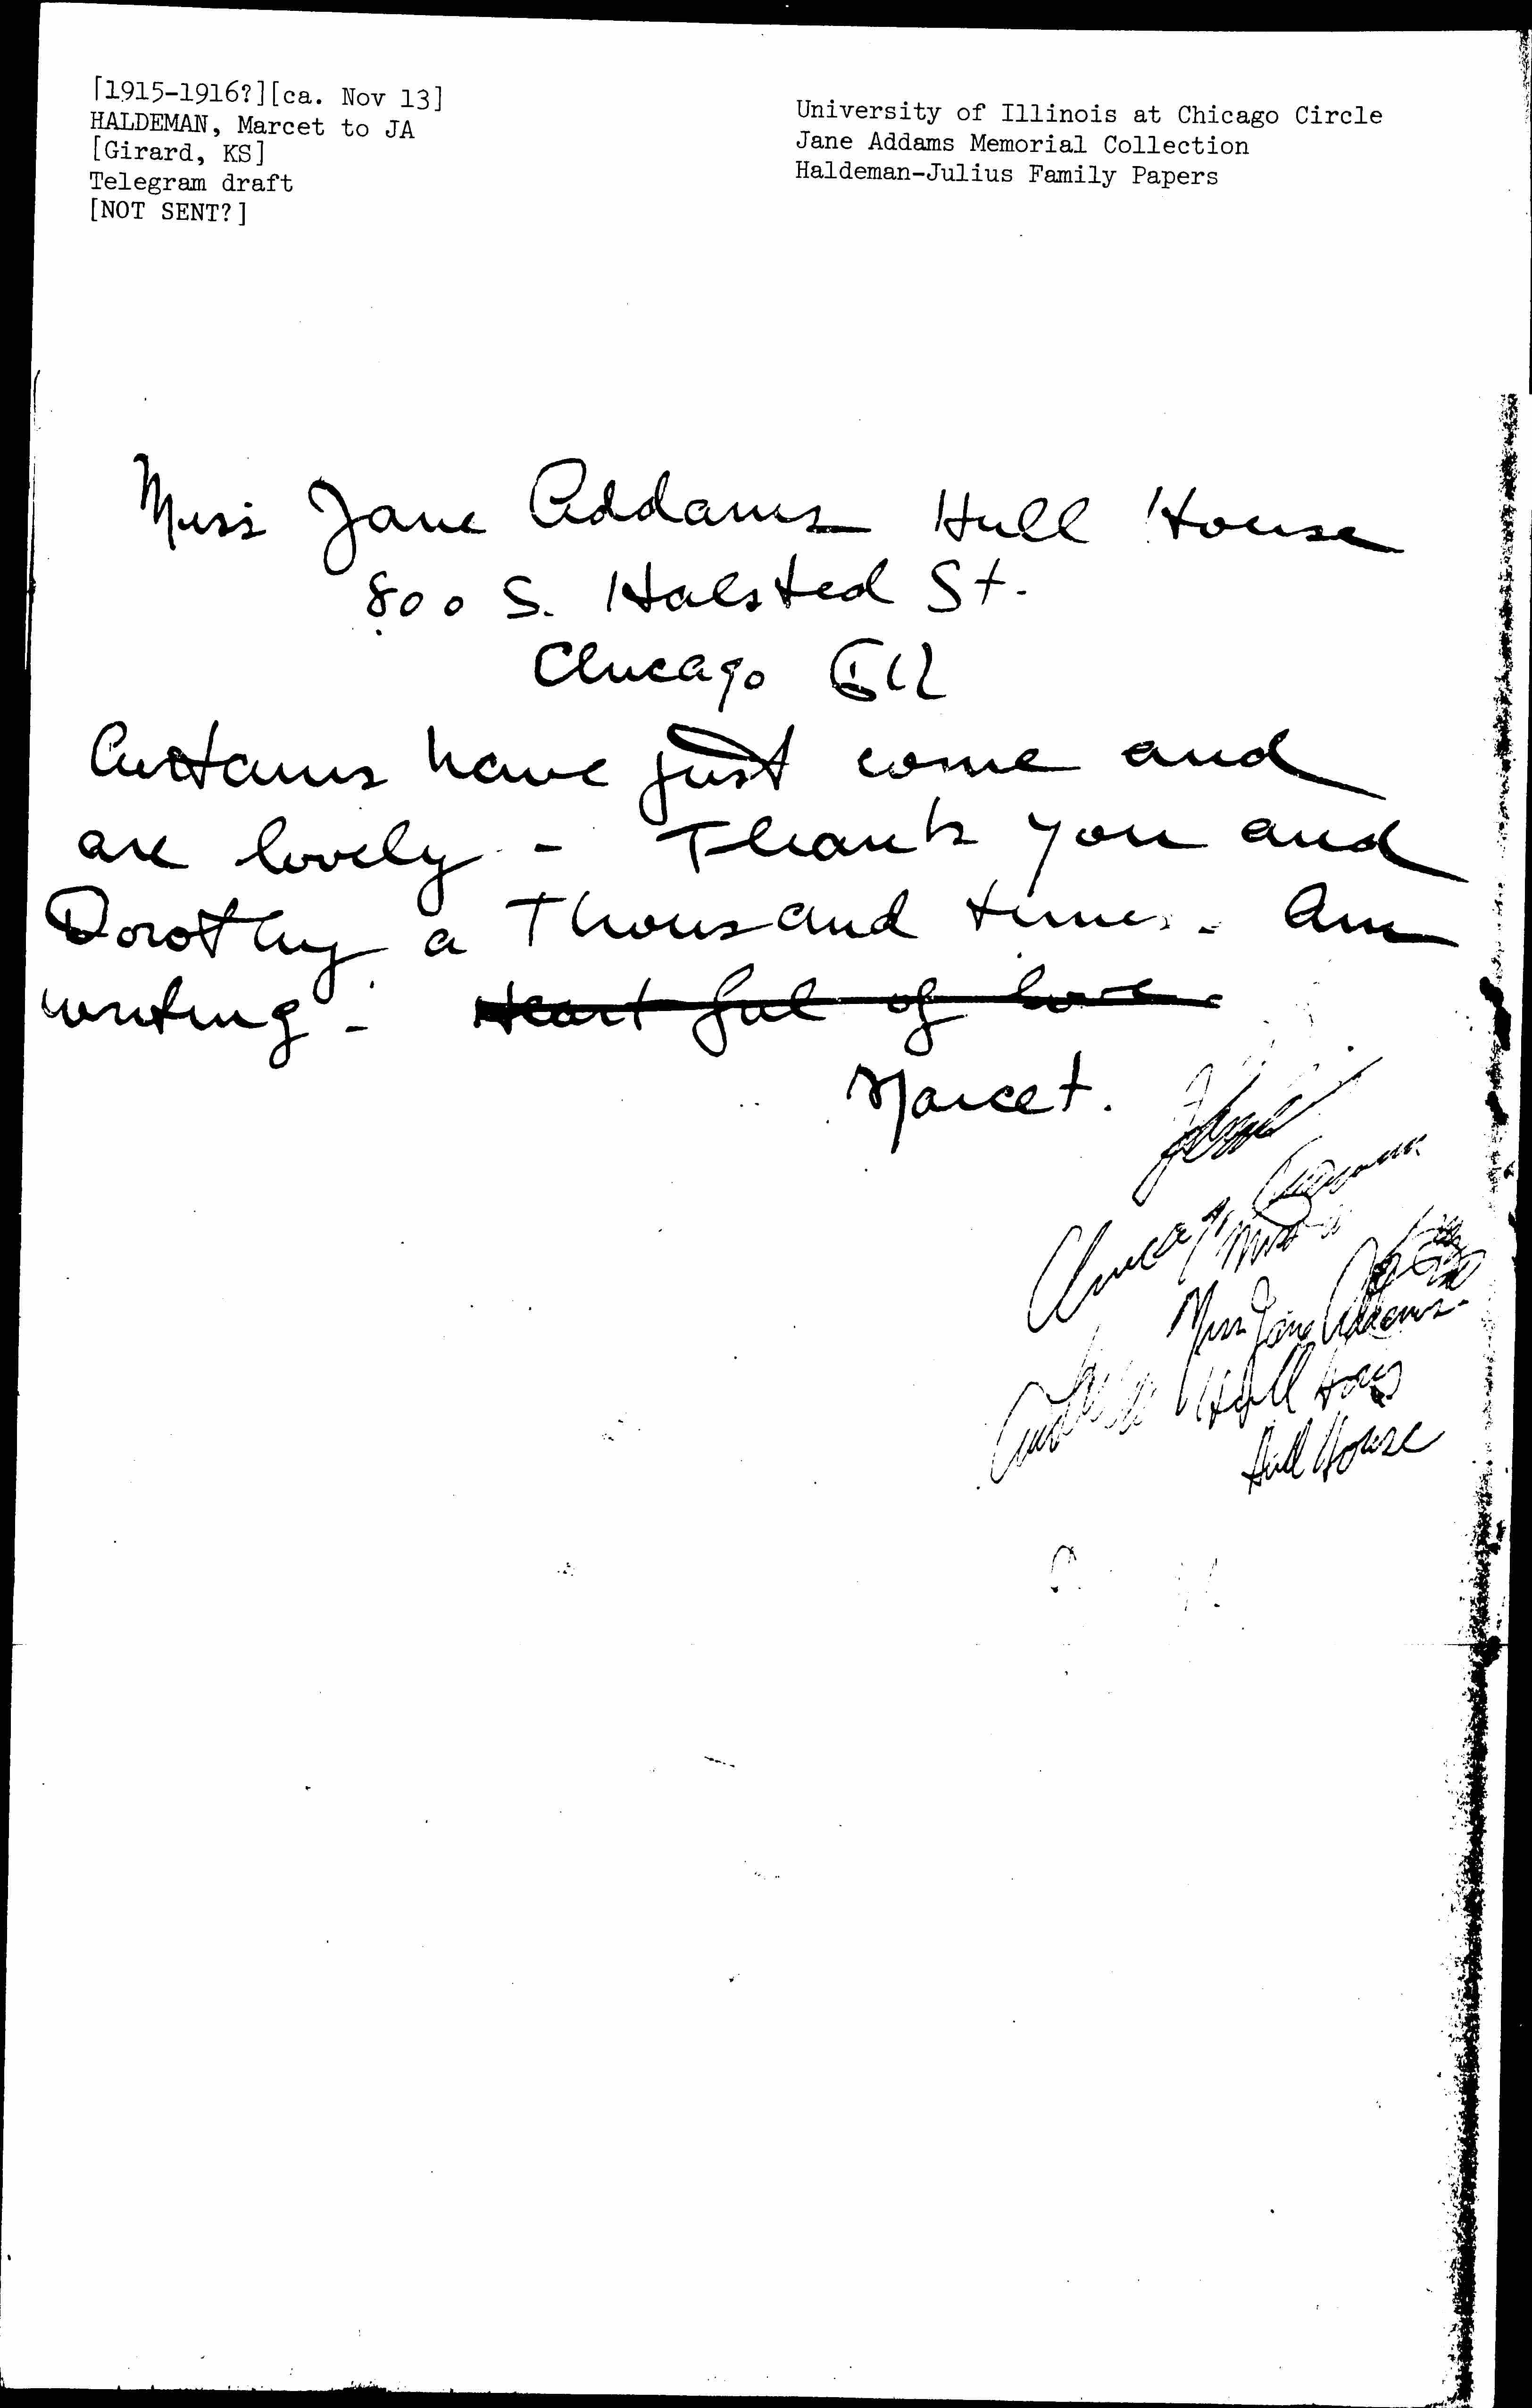 [1915-1916?][ca. Nov 13]
HALDEMAN, Marcet to JA
[Girard, KS]
Telegram draft
[NOT SENT?]
University of Illinois at Chicago Circle
Jane Addams Memorial Collection
Haldeman-Julius Family Papers
Miss Jane Addams Hull House
800 S. Halsted St.
Chicago Ill
Curtains have just come and
are lovely - Thank you and
Dorothy a Thousand times. Am
writing - Heart ful of love
Marcet.
Chicago
Miss Jane Addams.
Hull
Hull House